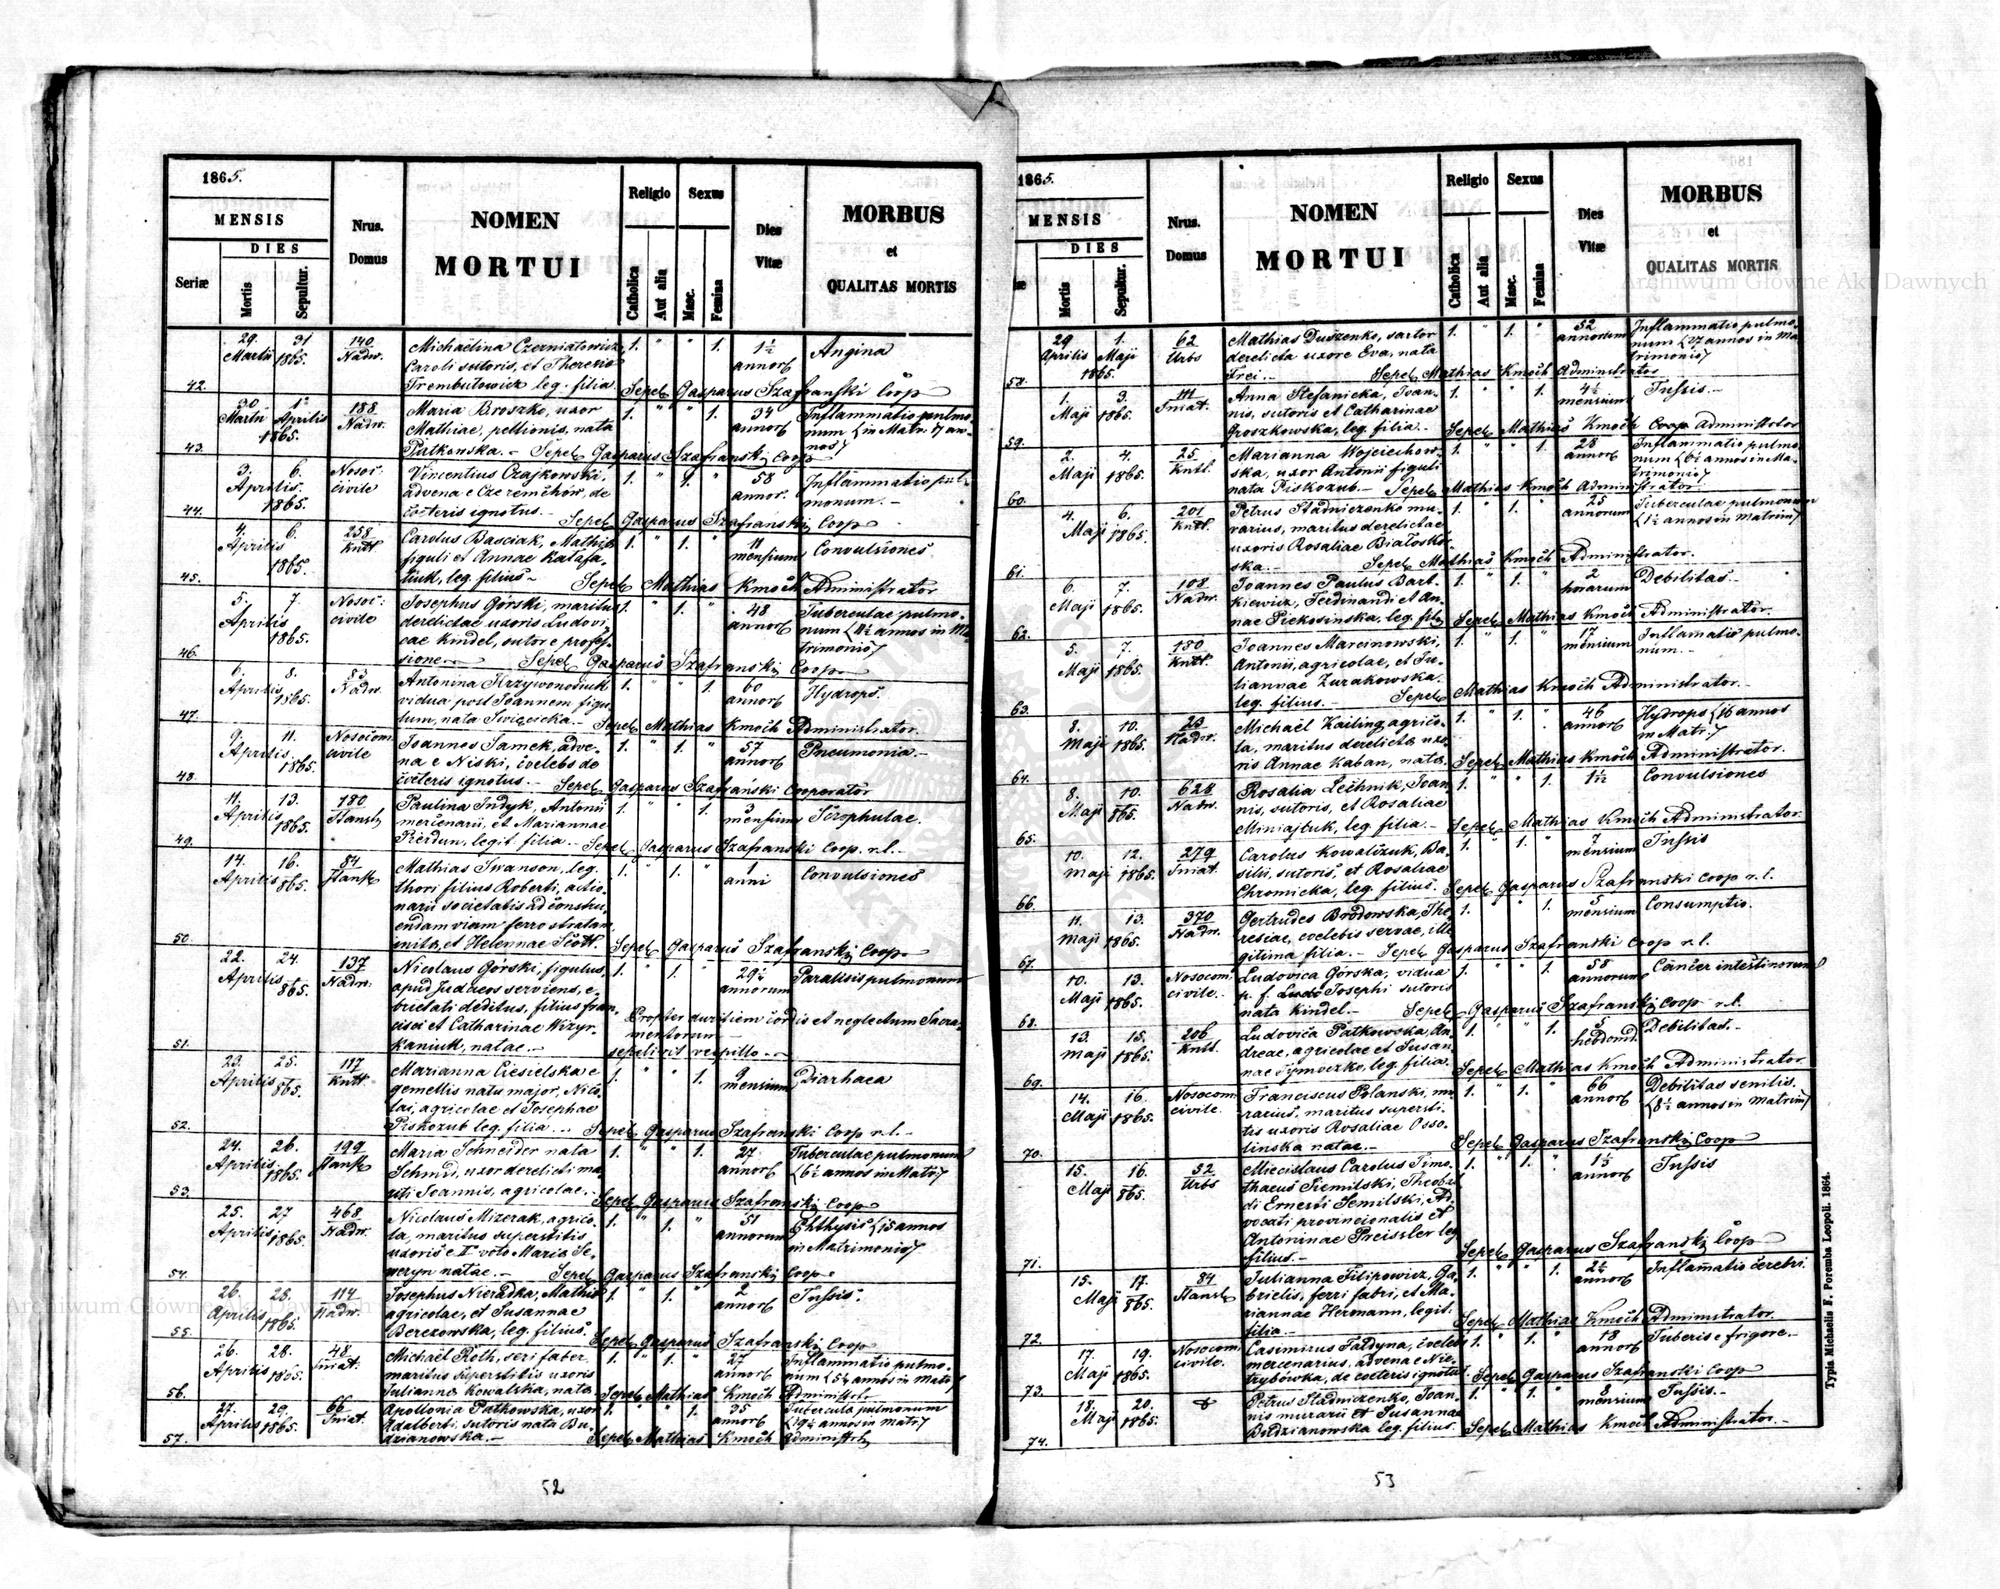 1865.
MENSIS
DIES
Seriæ
Mortis
Sepultur.
Nrus. Domus
NOMEN
MORTUI
Religio
Catholica
Aut alia
Sexus
Masc.
Femina
Dies Vitæ
MORBUS
et
QUALITAS MORTIS
42. 29. Martii 31 1865. 140 Nadw.
Michaëlina Czerniatowicz,
Caroli sutoris, et Theresia
Trembulowicz leg. filia
1. " " 1. 1½ annor Angina
Sepel. Gasparus Szafranski Coop
43. 30 Martii 1 Aprilis 1865. 188 Nadw.
Maria Broszko, uxor
Mathiae, pellionis, nata
Patkowska. –
1. " " 1. 34 annor Inflammatio pulmo-
num (in Matr. 17 an-
nos)
Sepel. Gasparus Szafranski Coop
44. 3. Aprilis. 6. 1865. Nosoc: civile
Vincentius Czajkowski,
advena e Czeremchów, de
coeteris ignotus. –
1. " 1. " 58 annor. Inflammatio pul-
monum. –
Sepel. Gasparus Szafranski Coop
45. 4. Aprilis 6. 1865. 258 Kntl
Carolus Basciak, Mathia
figuli et Annae Katafa-
tiuk, leg. filius –
1. " 1. " 11 mensium Convulsiones
Sepel. Mathias Kmoch Administrator
46. 5. Aprilis 7. 1865. Nosoc: civile
Josephus Górski, maritus
derelictae uxoris Ludovi-
cae Kindel, sutor e profes-
sione –
1. " 1. " 48 annor Tuberculae pulmo-
num (4½ annos in Ma-
trimonio)
Sepel. Gasparus Szafranski Coop
47. 6. Aprilis 8. 1865. 83 Nadw.
Antonina Krzywonosiuk
vidua post Joannem figu-
lum, nata Swięcicka. –
1. " " 1. 60 annor Hydrops.
Sepel. Mathias Kmoch Administrator
48. 9. Aprilis 11. 1865. Nosocom civile
Joannes Samek, adve-
na e Niski, coelebs de
coeteris ignotus. –
1. " 1. " 57 annor Pneumonia. –
Sepel. Gasparus Szafranski Cooperator
49. 11. Aprilis 13. 1865. 180 Stansl.
Paulina Indyk, Antonii
mercenarii, et Mariannae
Pierdun, legit. filia –
1. " 1. 3 mensium Scrophulae.
Sepel. Gasparus Szafranski Coop. r.l. –
50. 14. Aprilis 16. 1865. 84 Stansl
Mathias Swanson, leg.
thori filius Roberti, actio-
narii societatis ad constru-
endam viam ferro stratam
mito, et Helennae Scott.
1. " 1. " 1 anni Convulsiones
Sepel. Gasparus Szafranski Coop.
51. 22. Aprilis 24. 1865. 137 Nadw.
Nicolaus Górski, figulus,
apud Judaeos serviens, e-
brietati deditus, filius Fran-
cisci et Catharinae Wizyr-
kaniuk, natae. –
1. " 1. " 29½ annorum Paralisis pulmonum
Propter duritiem cordis et neglectum Sacra-
mentorum –
sepelivit vespillo –
52. 23. Aprilis 25. 1865. 117 Kntl.
Marianna Ciesielska e
gemellis natu major, Nico-
lai, agricolae et Josephae
Piskozub leg. filia –
1. " " 1. 9 mensium Diarhaea
Sepel. Gasparus Szafranski Coop r.l. –
53. 24. Aprilis 26. 1865. 199 Stansl
Maria Schneider nata
Schmid, uxor derelicti ma-
riti Joannis, agricolae. –
1. " " 1. 27 annor Tuberculae pulmonum
(6½ annos in Matr)
Sepel. Gasparus Szafranski Coop
54. 25. Aprilis 27 1865. 468 Nadw.
Nicolaus Mizerak, agrico-
la, maritus superstitis
uxoris e I° voto Maria Se-
weryn natae. –
1. " 1. " 51 annorum Phthysis (15 annos
in Matrimonio)
Sepel. Gasparus Szafranski Coop.
55. 26. Aprilis 28. 1865. 114 Nadw.
Josephus Nieradka, Mathia
agricolae, et Susannae
Berezowska, leg. filius.
1. " 1. " 2 annor Tussis.
Sepel. Gasparus Szafranski Coop
56. 26. Aprilis 28. 1865. 48 Sniat.
Michaël Roth, seri faber,
maritus superstitis uxoris
Julianna Kowalska, nata
1. " 1. " 27 annor Inflammatio pulmo-
num (5½ annos in Matr)
Sepel. Mathias Kmoch Administr
57. 27. Aprilis 29. 1865. 66 Sniat.
Apollonia Patkowska, uxor
Adalberti, sutoris nata Bu-
dzianowska. –
1. " " 1. 35 annor Tubercula pulmonum
(19½ annos in Matr)
Sepel. Mathias Kmoch Administr
52
1865.
MENSIS
DIES
Mortis
Sepultur.
Nrus. Domus
NOMEN
MORTUI
Religio
Catholica
Aut alia
Sexus
Masc.
Femina
Dies Vitæ
MORBUS
et
QUALITAS MORTIS
58. 29 Aprilis 1. Maji 1865. 62 Urbs
Mathias Duszenko, sartor
derelicta uxore Eva, nata
Frei. –
1. " 1. " 52 annorum Inflammatio pulmo-
num (27 annos in Ma-
trimonio)
Sepel. Mathias Kmoch Administrator
59. 1. Maji 3. 1865. 111 Sniat.
Anna Stefanicka, Joan-
nis, sutoris et Catharinae
Groszkowska, leg. filia. –
1. " " 1. 4½ mensium Tussis –
Sepel. Mathias Kmoch Coop Administrator
60. 2. Maji 4. 1865. 25 Kntl.
Marianna Wojciechow-
ska, uxor Antonii figuli
nata Piskozub. –
1. " " 1. 23 annor Inflammatio pulmo-
num (6½ annos in Ma-
trimonio)
Sepel. Mathias Kmoch Administrator
61. 4. Maji 6. 1865. 201 Kntl.
Petrus Stadniczenko mu-
rarius, maritus derelictae
uxoris Rosaliae Białoskor-
ska. –
1. " 1. " 25 annorum Tuberculae pulmonum
(1½ annos in Matrim)
Sepel. Mathias Kmoch Administrator.
62. 6. Maji 7. 1865. 108 Nadw.
Joannes Paulus Bart-
kiewicz, Ferdinandi et An-
nae Piekosinska, leg. fil.
1. " 1. " 2 horarum Debilitas –
Sepel. Mathias Kmoch Administrator.
63. 5. Maji 7. 1865. 180 Kntl.
Joannes Marcinowski,
Antonii, agricolae, et Ju-
liannae Zurakowska.
leg. filius. –
1. " 1. " 17 mensium Inflamatio pulmo-
num. –
Sepel. Mathias Kmoch Administrator. –
64. 8. Maji 10. 1865. 23 Nadw.
Michaël Kailing, agrico-
la, maritus derelicta uxo-
ris Annae Kaban, nata
1. " 1. " 46 annor Hydrops (16 annos
in Matr.)
Sepel. Mathias Kmoch Administrator
65. 8. Maji 10. 1865. 628 Nadw.
Rosalia Lechnik, Joan-
nis, sutoris, et Rosaliae
Miniajtuk, leg. filia. –
1. " " 1. 1½ Convulsiones
Sepel. Mathias Kmoch Administrator.
66. 10. Maji 12. 1865. 279 Sniat.
Carolus Kowalizuk, Ba-
silii, sutoris, et Rosaliae
Chromicka, leg. filius.
1. " 1. " 7 mensium Tussis
Sepel. Gasparus Szafranski Coop r.l.
67. 11. Maji 13. 1865. 370 Nadw.
Gertrudes Brodowska, The-
resiae, coelebis servae, ille-
gitima filia. –
1. " " 1. 5 mensium Consumptio.
Sepel. Gasparus Szafranski Coop r.l.
68. 10. Maji 13. 1865. Nosocom: civile. –
Ludovica Górska, vidua
p. f. Josephi sutoris
nata Kindel. –
1. " " 1. 58 annorum Cancer intestinorum
Sepel. Gasparus Szafranski Coop r.l.
69. 13. Maji 15. 1865. 206 Kntl.
Ludovica Patkowska, An-
dreae, agricolae et Susan-
nae Tymoczko, leg. filia.
1. " " 1. 5 hebdomd. Debilitas. –
Sepel. Mathias Kmoch Administrator
70. 14. Maji 16. 1865. Nosocom: civile.
Franciscus Polanski, mu-
rarius, maritus supersti-
tus uxoris Rosaliae Osso-
linska natae. –
1. " 1. " 66 annor Debilitas senilis.
(8½ annos in Matrim)
Sepel. Gasparus Szafranski Coop
71. 15. Maji 16. 1865. 52 Urbs
Miecislaus Carolus Timo-
thaeus Siemilski, Theobal-
di Ernesti Semilski, Ad-
vocati provincionalis et
Antoninae Preissler leg.
filius. –
1. " 1. " 1½ annor Tussis
Sepel. Gasparus Szafranski Coop
72. 15. Maji 17. 1865. 84 Stansl.
Julianna Filipowicz, Ga-
brielis, ferri fabri, et Ma-
riannae Hermann, legit.
filia –
1. " " 1. 2½ annor Inflamatio cerebri.
Sepel. Mathias Kmoch Administrator.
73. 17. Maji 19. 1865. Nosocom: civile.
Casimirus Faldyna, coelebs
mercenarius, advena e Nie-
trzybówka, de coeteris ignotus.
1. " 1. " 18 annor Tuberis e frigore. –
Sepel. Gasparus Szafranski Coop
74. 18. Maji 20. 1865.
Petrus Stadniczenko, Joan-
nis murarii et Susannae
Budzianowska leg. filius.
1. " 1. " 8 mensium Tussis. –
Sepel. Mathias Kmoch Administrator. –
53
Typis Michaelis F. Poremba Leopoli. 1864.
Archiwum Główne Akt Dawnych
Archiwum Główne Akt Dawnych